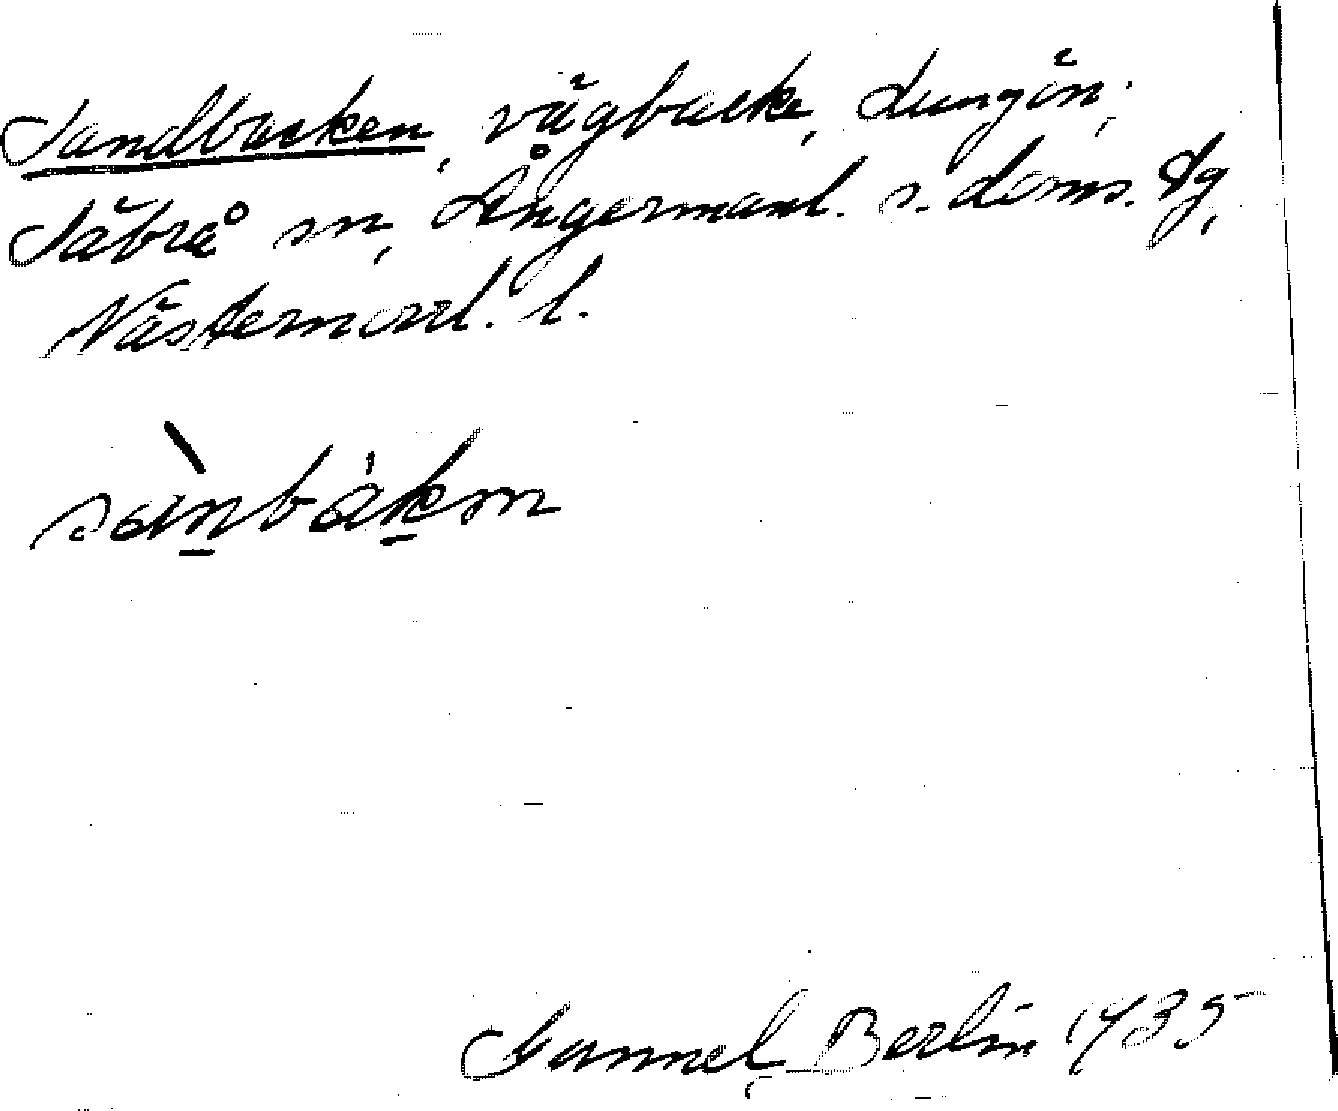 Sandbacken, vägbacke, Lungön,
Säbrå sn, Ångermanl. s. doms. dg,
Västernorrl. l.
sanbàkm
Gunnel Berlin 1935